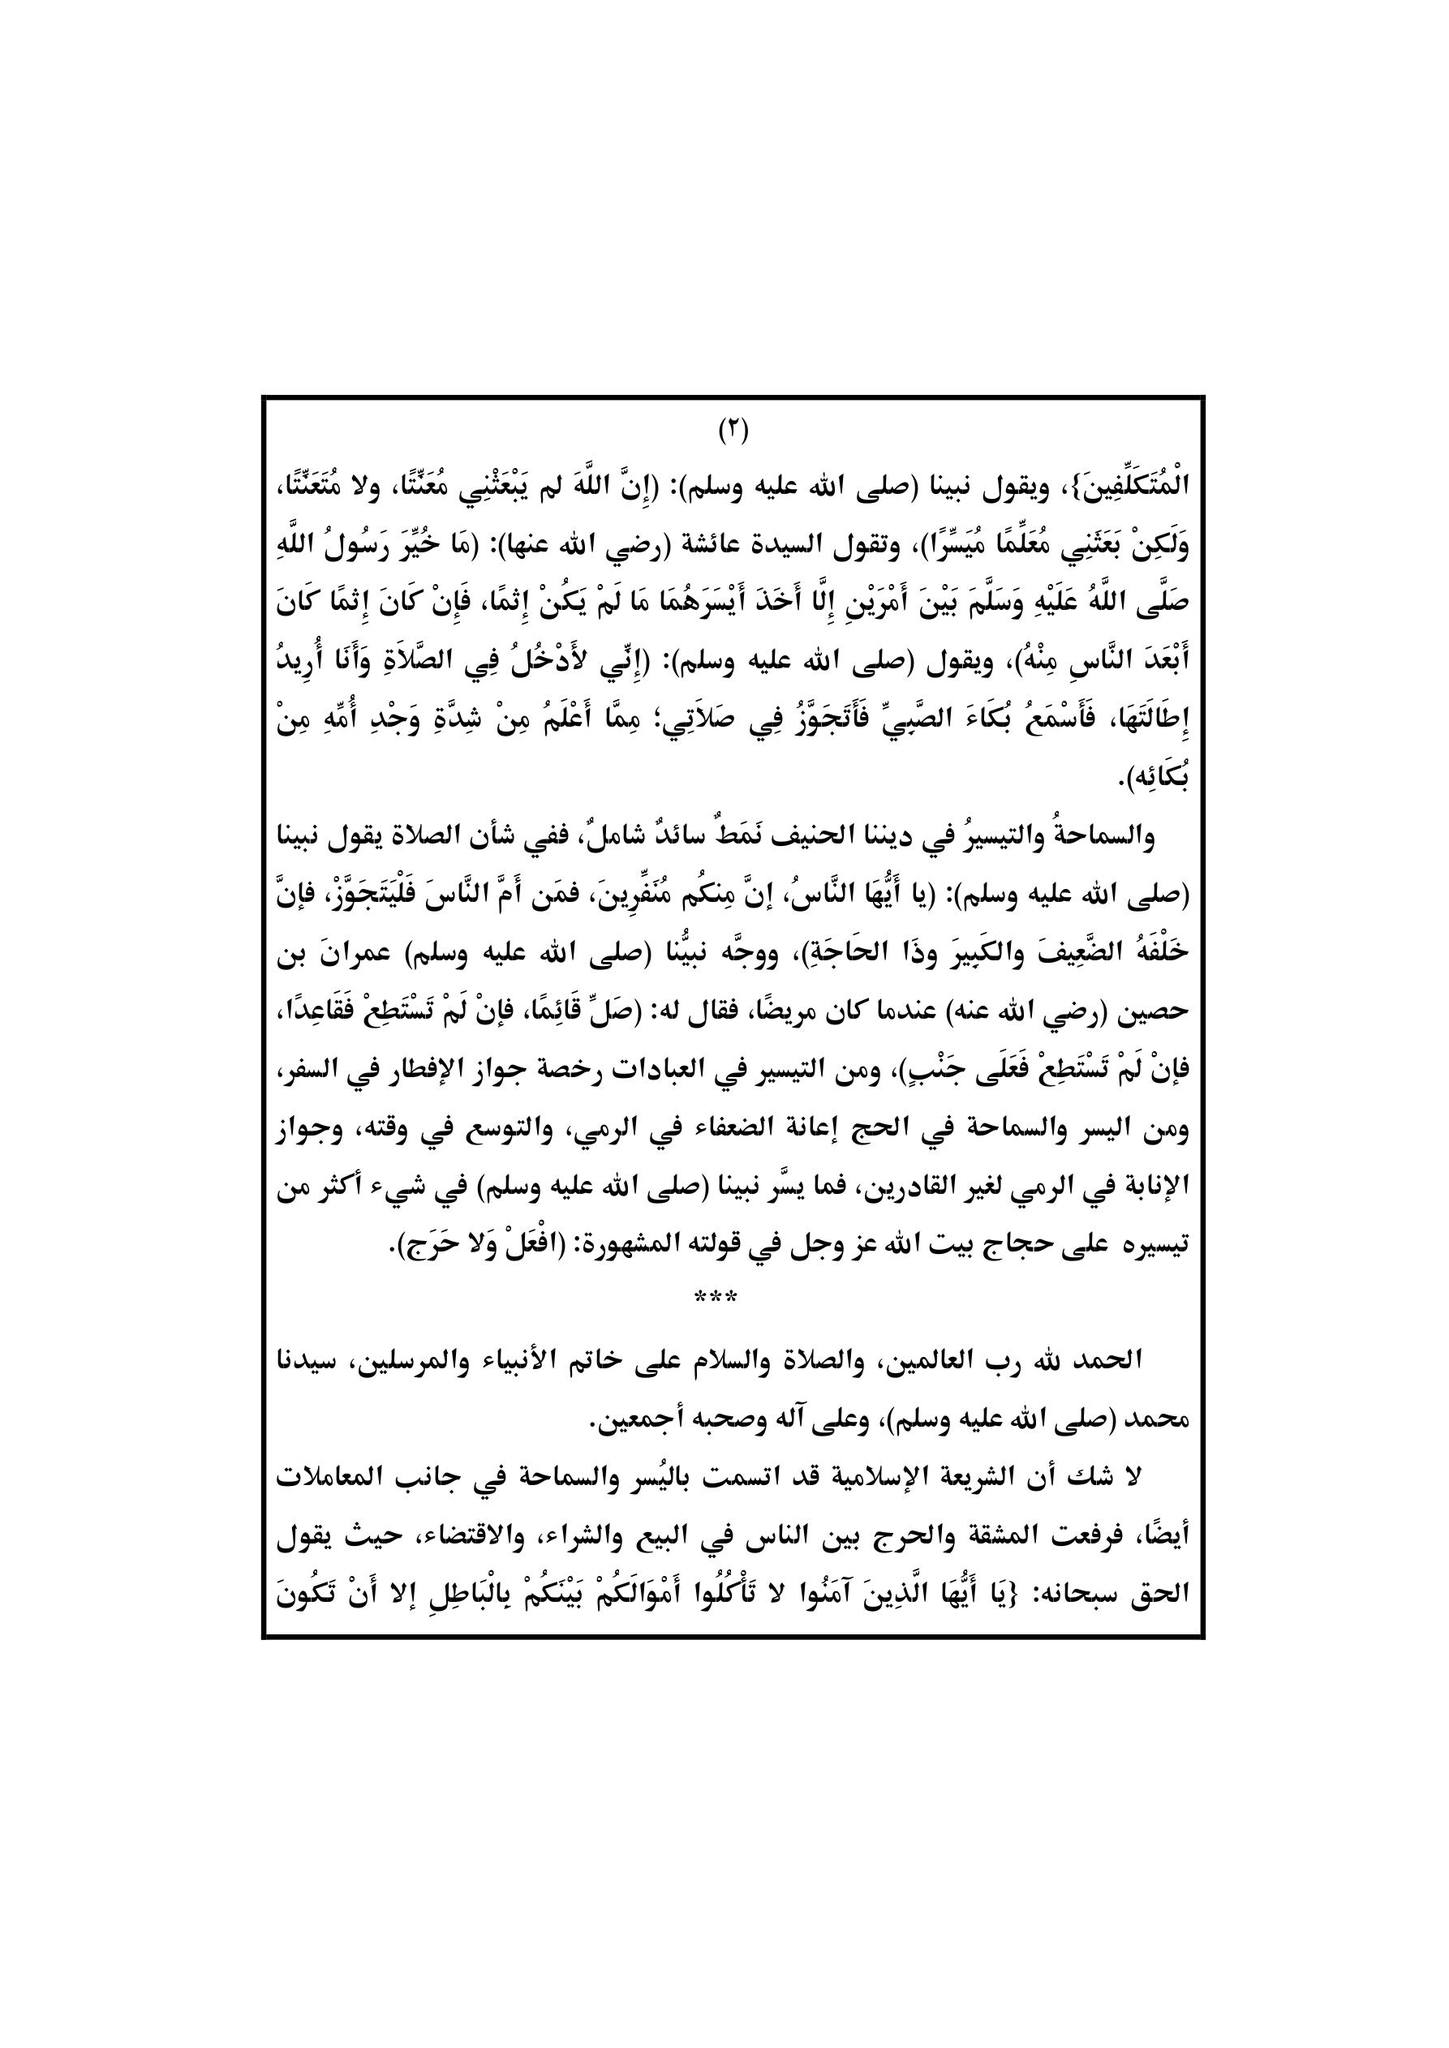 (٢)
الْمُتَكَلِّفِينَ}، ويقول نبينا (صلى الله عليه وسلم): (إِنَّ اللَّهَ لم يَبْعَثْنِي مُعَنِّتًا، ولا مُتَعَنِّتًا،
وَلَكِنْ بَعَثَنِي مُعَلِّمًا مُيَسِّرًا)، وتقول السيدة عائشة (رضي الله عنها): (مَا خُيِّرَ رَسُولُ اللَّهِ
صَلَّى اللَّهُ عَلَيْهِ وَسَلَّمَ بَيْنَ أَمْرَيْنِ إِلَّا أَخَذَ أَيْسَرَهُمَا مَا لَمْ يَكُنْ إِثمًا، فَإِنْ كَانَ إِثمًا كَانَ
أَبْعَدَ النَّاسِ مِنْهُ)، ويقول (صلى الله عليه وسلم): (إِنِّي لأَدْخُلُ فِي الصَّلاَةِ وَأَنَا أُرِيدُ
إِطَالَتَهَا، فَأَسْمَعُ بُكَاءَ الصَّبِيِّ فَأَتَجَوَّزُ فِي صَلاَتِي؛ مِمَّا أَعْلَمُ مِنْ شِدَّةِ وَجْدِ أُمِّهِ مِنْ
بُكَائِه).
والسماحةُ والتيسيرُ في ديننا الحنيف نَمَطٌ سائدٌ شاملٌ، ففي شأن الصلاة يقول نبينا
(صلى الله عليه وسلم): (يا أَيُّهَا النَّاسُ، إنَّ مِنكُم مُنَفِّرِينَ، فمَن أَمَّ النَّاسَ فَلْيَتَجَوَّزْ، فإنَّ
خَلْفَهُ الضَّعِيفَ والكَبِيرَ وذَا الحَاجَةِ)، ووجَّه نبيُّنا (صلى الله عليه وسلم) عمرانَ بن
حصين (رضي الله عنه) عندما كان مريضًا، فقال له: (صَلِّ قَائِمًا، فإنْ لَمْ تَسْتَطِعْ فَقَاعِدًا،
فإنْ لَمْ تَسْتَطِعْ فَعَلَى جَنْبٍ)، ومن التيسير في العبادات رخصة جواز الإفطار في السفر،
ومن اليسر والسماحة في الحج إعانة الضعفاء في الرمي، والتوسع في وقته، وجواز
الإنابة في الرمي لغير القادرين، فما يسَّر نبينا (صلى الله عليه وسلم) في شيء أكثر من
تيسيره على حجاج بيت الله عز وجل في قولته المشهورة: (افْعَلْ وَلا حَرَج).
***
الحمد لله رب العالمين، والصلاة والسلام على خاتم الأنبياء والمرسلين، سيدنا
محمد (صلى الله عليه وسلم)، وعلى آله وصحبه أجمعين.
لا شك أن الشريعة الإسلامية قد اتسمت باليُسر والسماحة في جانب المعاملات
أيضًا، فرفعت المشقة والحرج بين الناس في البيع والشراء، والاقتضاء، حيث يقول
الحق سبحانه: {يَا أَيُّهَا الَّذِينَ آمَنُوا لا تَأْكُلُوا أَمْوَالَكُمْ بَيْنَكُمْ بِالْبَاطِلِ إلا أَنْ تَكُونَ